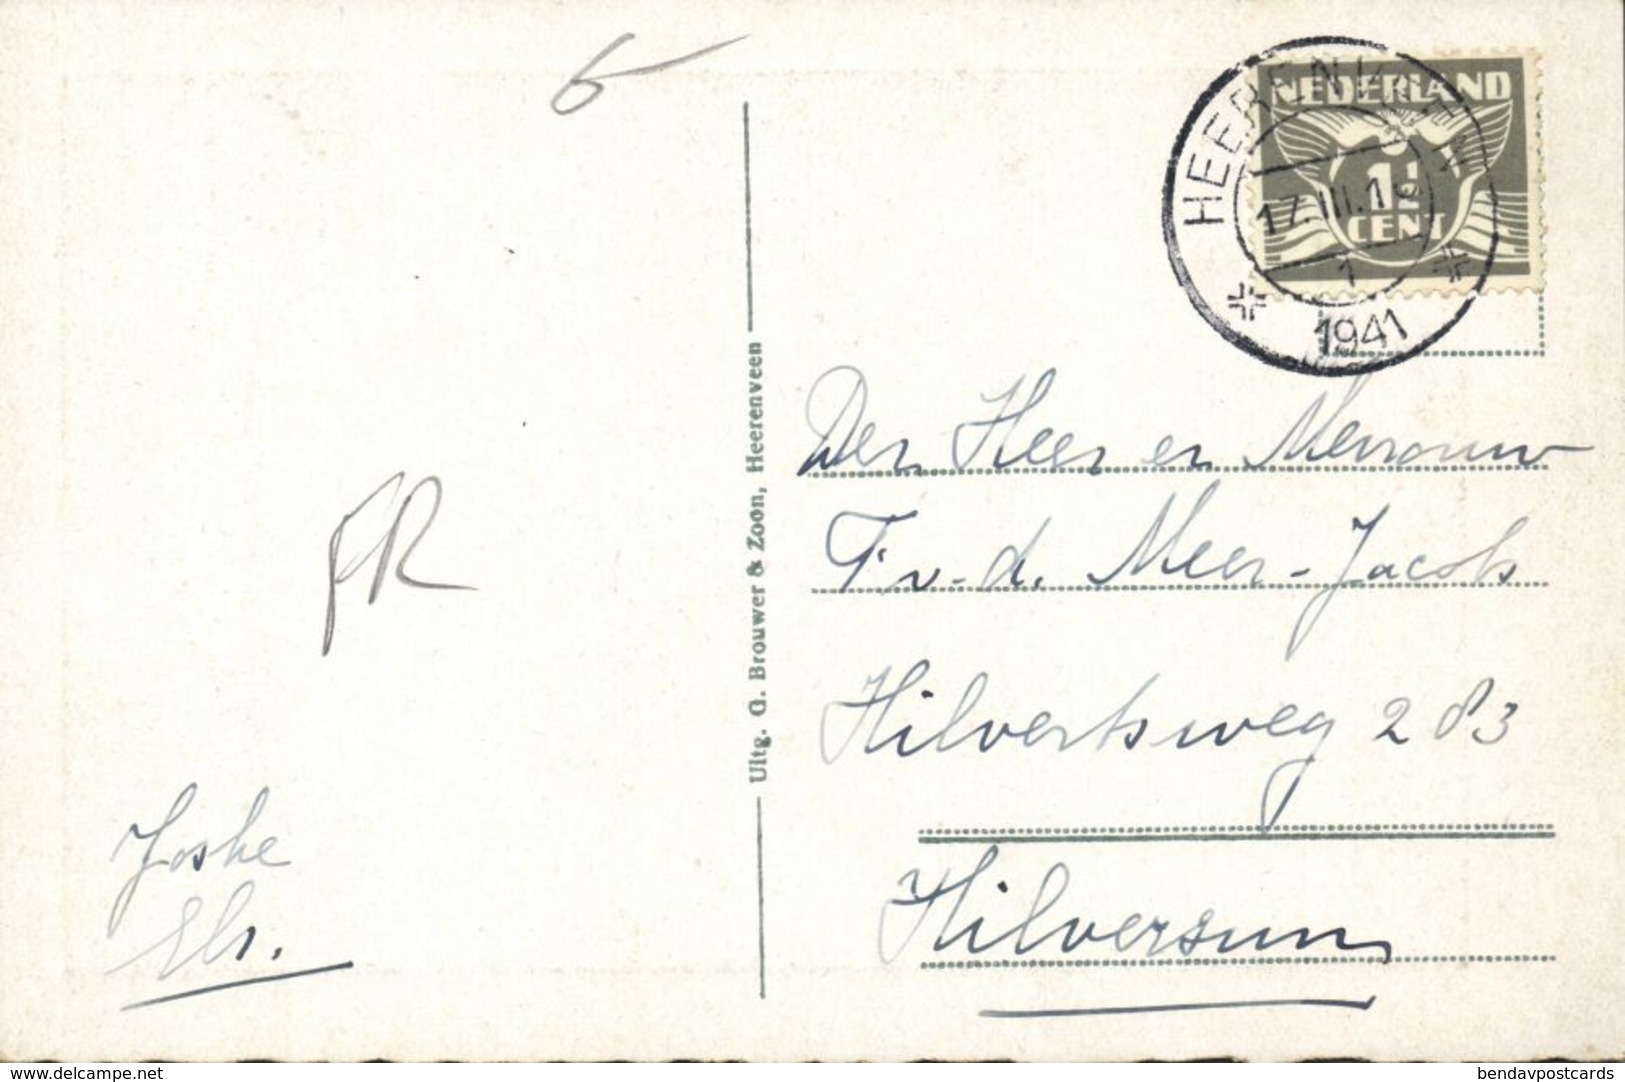 6
NEDERLAND
1½
CENT
HEERENVEEN
17.III.1
1
1941
Den Heer en Mevrouw
F. v. d. Meer-Jacobs
Hilvertsweg 283
Hilversum
Uitg. G. Brouwer & Zoon, Heerenveen
PR
Joshe
Els.
www.delcampe.net
bendavpostcards